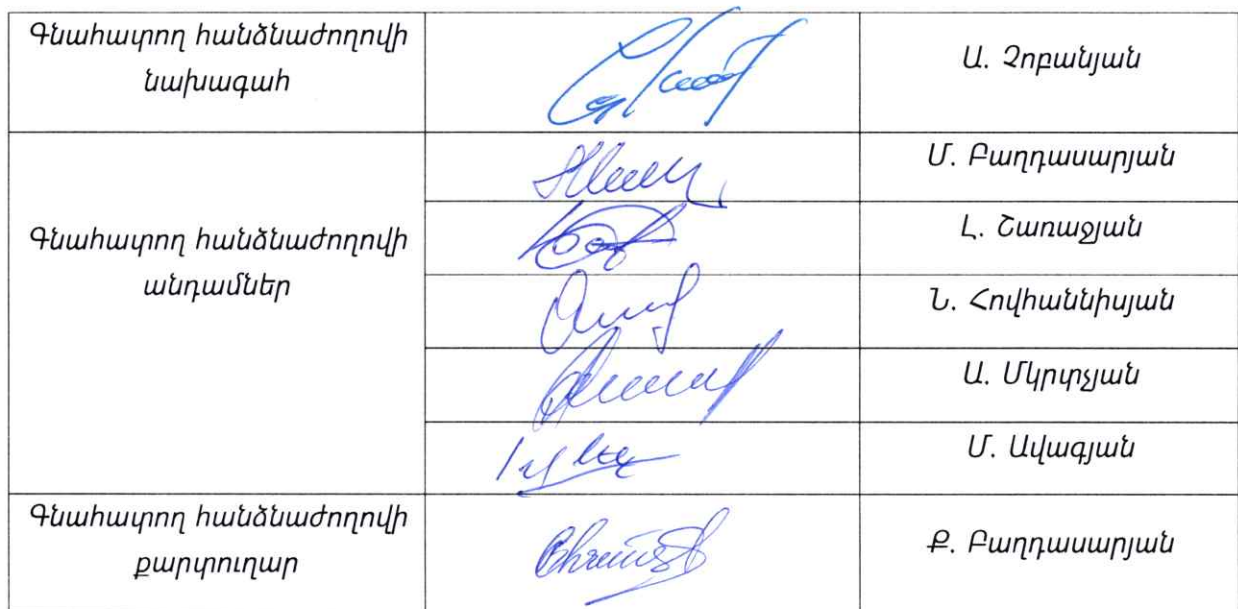 Գնահատող հանձնաժողովի
նախագահ
Ա. Չոբանյան
Մ. Բաղդասարյան
Գնահատող հանձնաժողովի
անդամներ
Լ. Շառաջյան
Ն. Հովհաննիսյան
Ա. Մկրտչյան
Մ. Ավագյան
Գնահատող հանձնաժողովի
քարտուղար
Ք. Բաղդասարյան